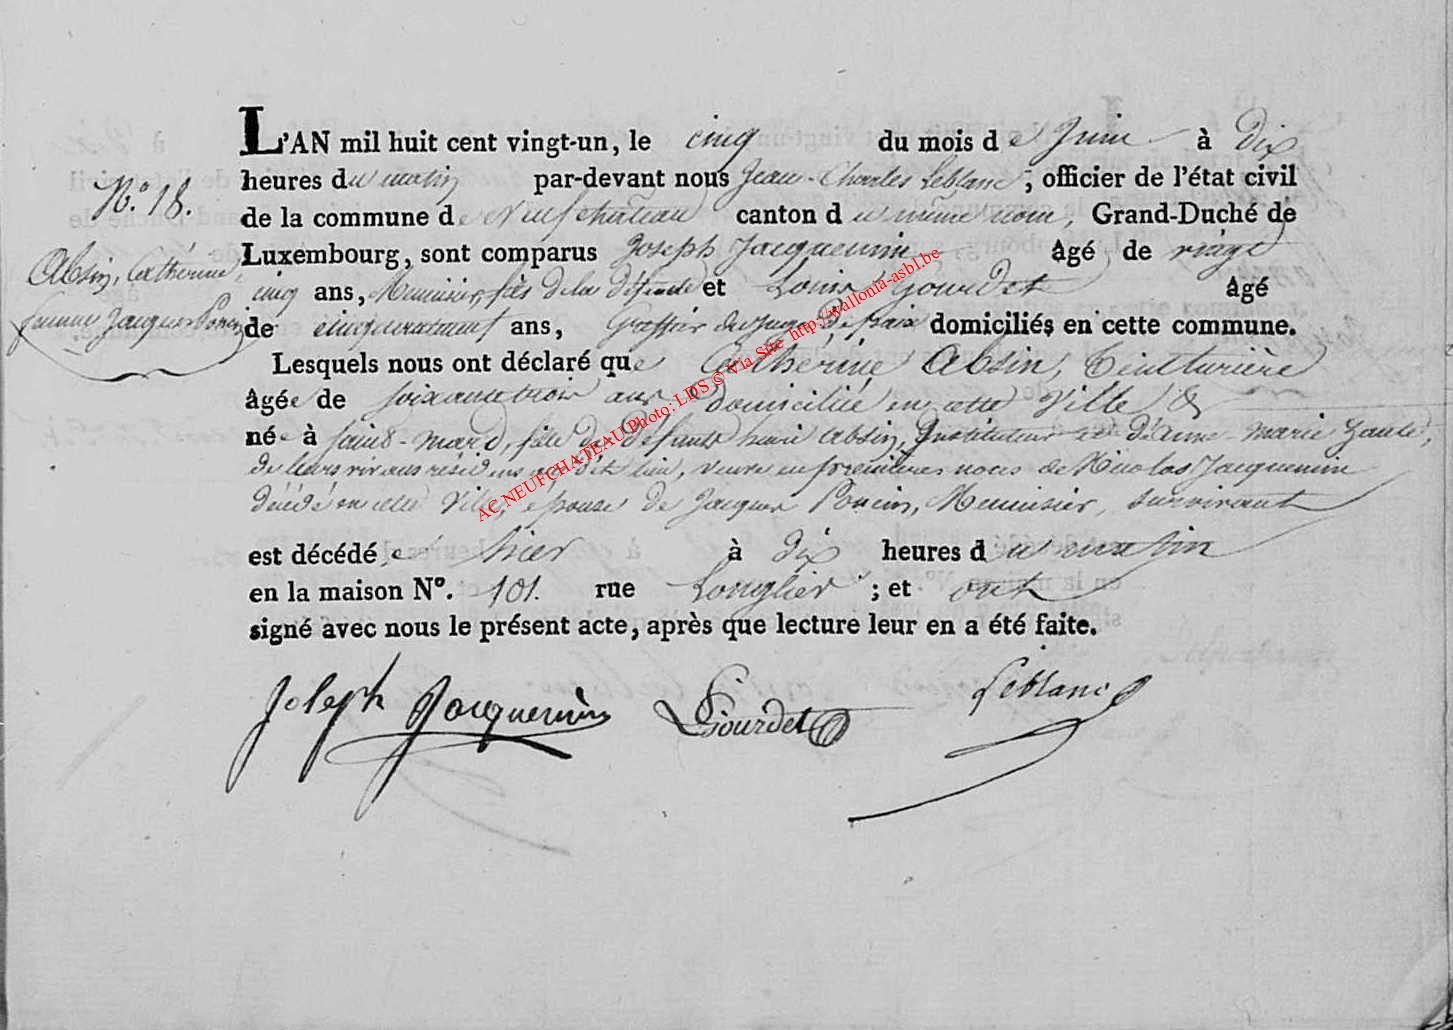 L'AN mil huit cent vingt-un, le cinq du mois de Juin à Dix
heures du matin par-devant nous Jean-Charles Leblanc, officier de l'état civil
N.° 18.
de la commune de Neufchateau canton du même nom, Grand-Duché de
Luxembourg, sont comparus Joseph Jacquemin âgé de vingt
Absin, Catherine,
cinq ans, Menuisier, fils de la défunte et Louis Gourdet âgé
femme Jacques Poncin
de cinquante ans, Greffier du Juge de paix domiciliés en cette commune.
Lesquels nous ont déclaré que Catherine Absin, Teinturière
âgée de soixante trois ans Domiciliée en cette Ville &
née à Saint-Mard, fille de défunts henri Absin, Instituteur et d'anne marie
de leurs vivans résidens au dit lieu, veuve en premieres noces de Nicolas Jacquemin
décédé en cette Ville, épouse de Jacques Poncin, Menuisier, survivant
est décédée hier à dix heures du matin
en la maison N°. 101. rue Longlier ; et ont
signé avec nous le présent acte, après que lecture leur en a été faite.
Joseph Jacquemin L Gourdet Leblanc
AC NEUFCHATEAU Photo: LDS © Via Site http://wallonia-asbl.be